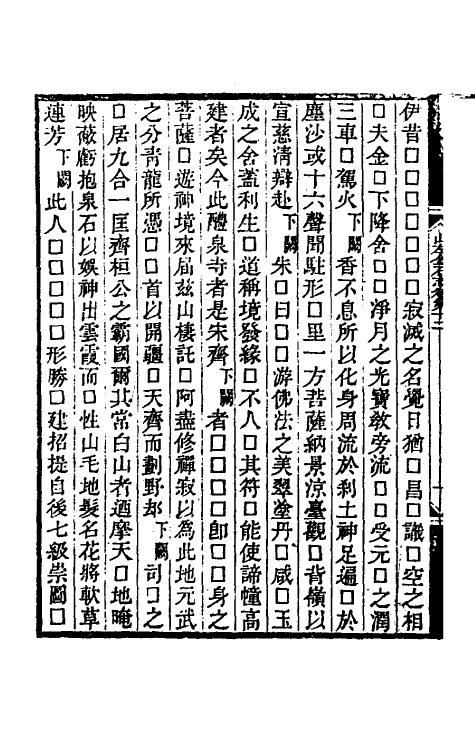 伊昔□□□□□□□□□寂滅之名覺日猶□昌□議□空之相
□夫金□下降舍□□淨月之光寶敎旁流□□受元□之潤
三車□駕火下闕香不息所以化身周流於刹土神足遍□於
塵沙或十六聲聞駐形□里一方菩薩納景涼臺觀□背嶺以
宣慈淸辯赴下闕朱□日□□游佛法之美翠塗丹□咸□玉
成之舍葢利生□道稱境發緣□不人□其符□能使諦幢高
建者矣今此醴泉寺者是宋齊下闕者□□□□卽□□身之
菩薩□遊神境來屆茲山棲託□阿盡修禪寂以爲此地元武
之分靑龍所憑□□首以開疆□天齊而劃野却下闕司□之
□居九合一匡齊桓公之霸國爾其常白山者逎摩天□地晻
映蔽虧抱泉石以娛神出雲霞而□性山毛地髮名花將軟草
連芳下闕此人□□□□□形勝□建招提自後七級崇圖□